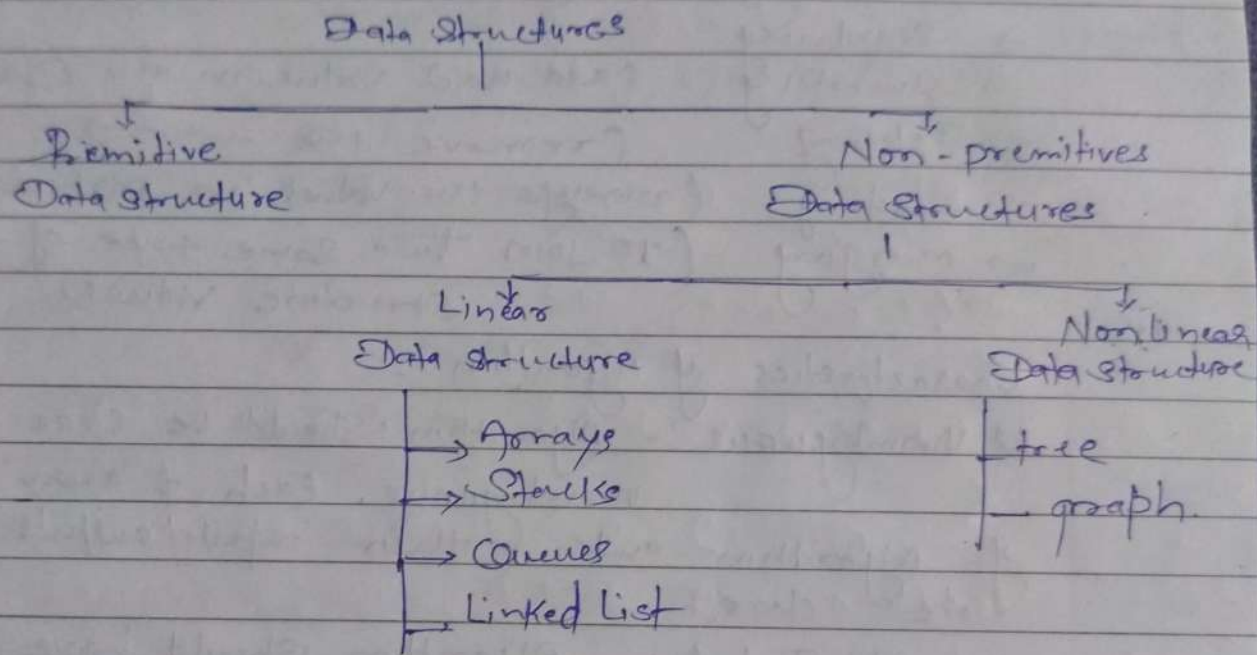 Data Structures
Premitive
Data Structure
Non-premitives
Data Structures
Linear
Data Structure
Non linear
Data Structure
Arrays
Stacks
Queues
Linked List
tree
graph.